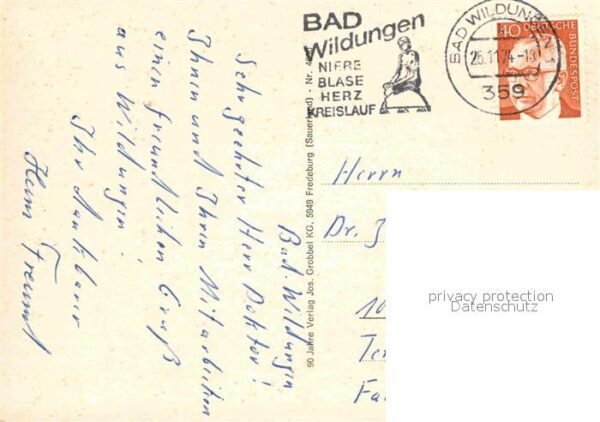 BAD
Wildungen
NIERE
BLASE
HERZ
KREISLAUF
BAD WILDUN
25.11.74-18
359
40
DEUTSCHE BUNDESPOST
Bad. Wildungen
Sehr geehrter Herr Doktor!
Ihnen und Ihren Mitarbeiten
einen freundlichen Gruß
aus Wildungen!
Ihr dankbarer
Heinz
90 Jahre Verlag Jos. Grobbel KG, 5949 Fredeburg (Sauerland) - Nr.
Herrn
Dr. J
10
Te
Fa
privacy protection
Datenschutz